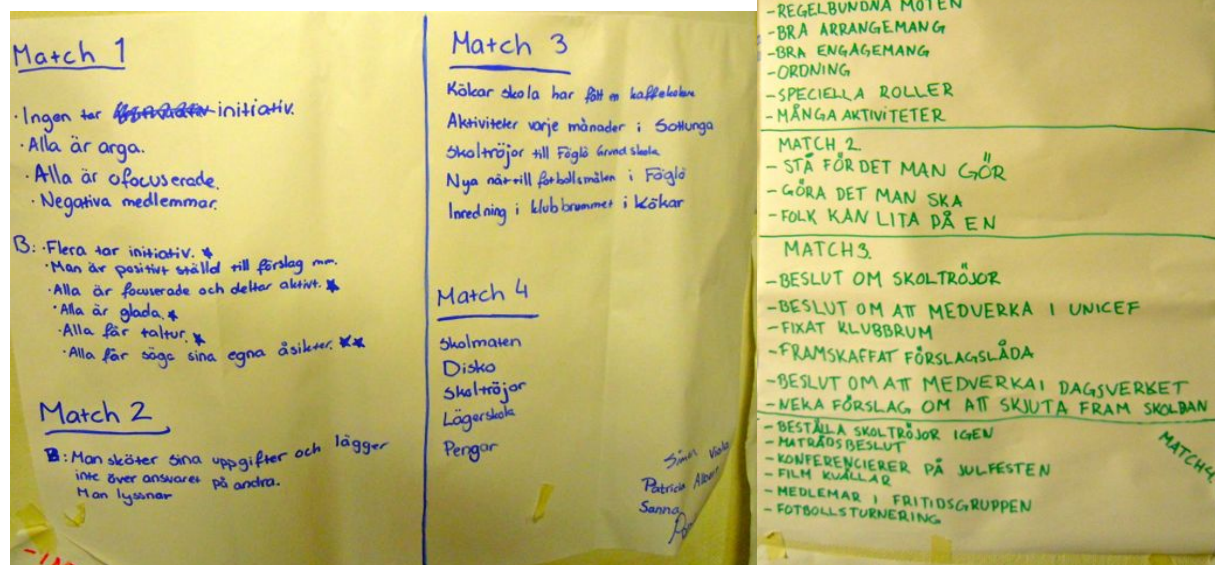 Match 1
·Ingen tar initiativ.
·Alla är arga.
·Alla är ofocuserade.
·Negativa medlemmar.
B: ·Flera tar initiativ.
·Man är positivt ställd till förslag mm.
·Alla är focuserade och deltar aktivt.
·Alla är glada.
·Alla får taltur.
·Alla får säga sina egna åsikter.
Match 2
B: Man sköter sina uppgifter och lägger
inte över ansvaret på andra.
Man lyssnar
Match 3
Kökar skola har fått en
Aktiviteter varje månader i Sottunga
Skoltröjor till Föglö Grundskola
Nya nät till fotbollsmålen i Föglö
Inredning i klubbrummet i Kökar
Match 4
Skolmaten
Disko
Skoltröjor
Lägerskola
Pengar
Patricia
Sanna
-REGELBUNDNA MÖTEN
-BRA ARRANGEMANG
-BRA ENGAGEMANG
-ORDNING
-SPECIELLA ROLLER
-MÅNGA AKTIVITETER
MATCH 2.
-STÅ FÖR DET MAN GÖR
-GÖRA DET MAN SKA
-FOLK KAN LITA PÅ EN
MATCH3.
-BESLUT OM SKOLTRÖJOR
-BESLUT OM ATT MEDVERKA I UNICEF
-FIXAT KLUBBRUM
-FRAMSKAFFAT FÖRSLAGSLÅDA
-BESLUT OM ATT MEDVERKA I DAGSVERKET
-NEKA FÖRSLAG OM ATT SKJUTA FRAM SKOLDAN
MATCH4.
-BESTÄLLA SKOLTRÖJOR IGEN
-MATRÅDSBESLUT
-KONFERENCIERER PÅ JULFESTEN
-FILM KVÄLLAR
-MEDLEMAR I FRITIDSGRUPPEN
-FOTBOLLSTURNERING